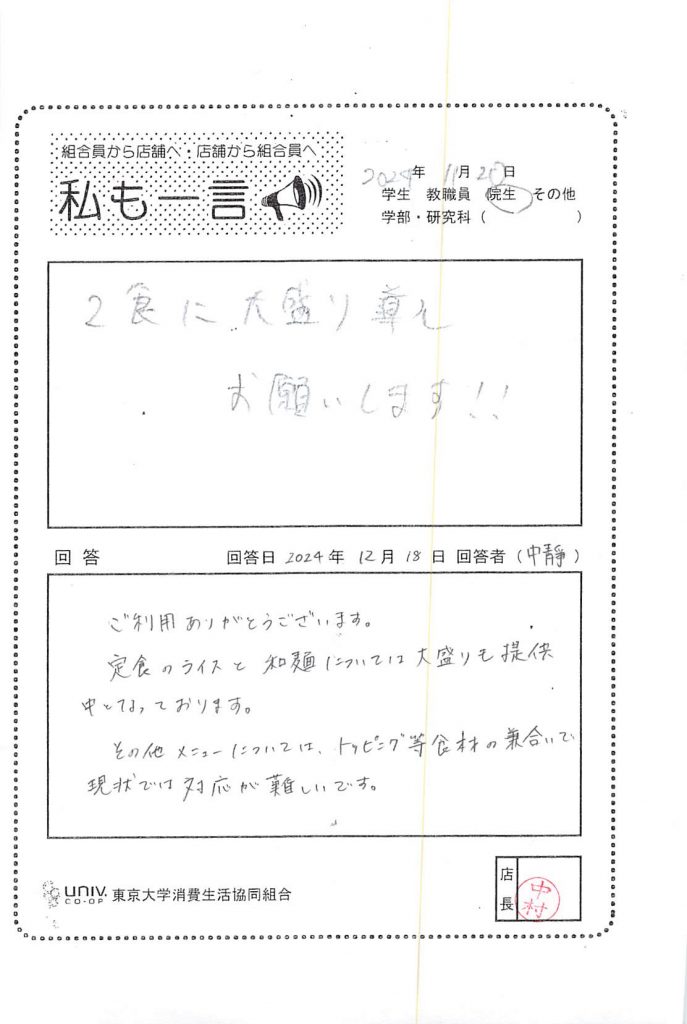 組合員から店舗へ・店舗から組合員へ
私も一言
2024年 11月20日
学生 教職員 院生 その他
学部・研究科（ ）
2食に大盛り導入
お願いします!!
回答 回答日 2024年 12月 18日 回答者（中靜）
ご利用ありがとうございます。
定食のライスと和麺については大盛りも提供
中となっております。
その他メニューについては、トッピング等食材の兼合いで
現状では対応が難しいです。
UNIV. CO-OP 東京大学消費生活協同組合
店長
中村